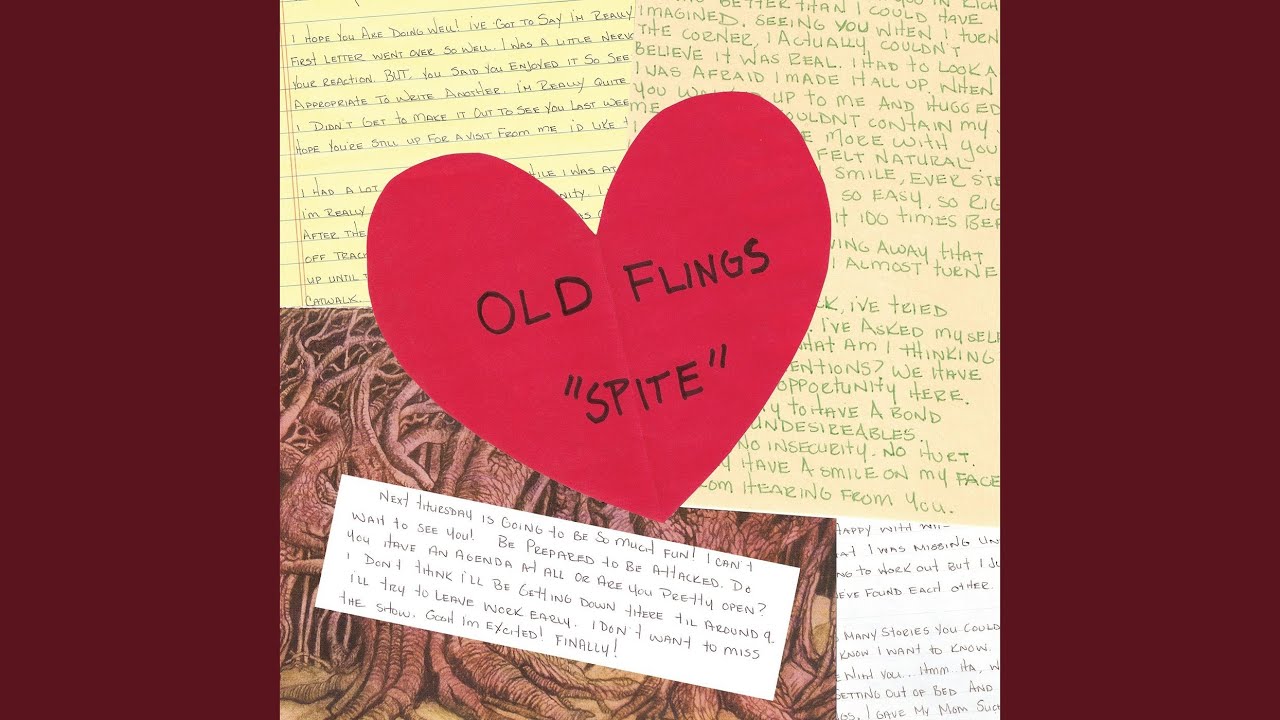 I HOPE YOU ARE DOING WELL! I'VE GOT TO SAY I'M REALLY
FIRST LETTER WENT OVER SO WELL. I WAS A LITTLE NERV
YOUR REACTION. BUT, YOU SAID YOU ENJOYED IT SO SEE
APPROPRIATE TO WRITE ANOTHER. I'M REALLY QUITE
I DIDN'T GET TO MAKE IT OUT TO SEE YOU LAST WEE
HOPE YOU'RE STILL UP FOR A VISIT FROM ME I'D LIKE
I HAD A LOT
WHILE I WAS AT
I'M REALLY
AFTER THE
OFF TRAC
UP UNTIL
CATWALK.
BETTER THAN I COULD HAVE
IMAGINED. SEEING YOU WHEN I TURN
THE CORNER, I ACTUALLY COULDN'T
BELIEVE IT WAS REAL. I HAD TO LOOK A
I WAS AFRAID I MADE IT ALL UP. WHEN
YOU UP TO ME AND HUGGED
ME OULDNT CONTAIN MY
MORE WITH YOU
FELT NATURAL
SMILE, EVER STE
SO EASY. SO RIG
IT 100 TIMES BEA
VING AWAY THAT
I ALMOST TURNE
CK, I'VE TRIED
I'VE ASKED MYSELF
HAT AM I THINKING
ENTIONS? WE HAVE
OPPORTUNITY HERE.
Y TO HAVE A BOND
UNDESIREABLES.
NO INSECURITY. NO HURT.
Y HAVE A SMILE ON MY FACE
OM HEARING FROM YOU.
OLD FLINGS
"SPITE"
NEXT THURSDAY IS GOING TO BE SO MUCH FUN! I CAN'T
WAIT TO SEE YOU! BE PREPARED TO BE ATTACKED. DO
YOU HAVE AN AGENDA AT ALL OR ARE YOU PRETTY OPEN?
I DON'T THINK I'LL BE GETTING DOWN THERE TIL AROUND 9.
I'LL TRY TO LEAVE WORK EARLY. I DON'T WANT TO MISS
THE SHOW. GOSH I'M EXCITED! FINALLY!
HAPPY WITH WI-
AT I WAS MISSING UN
NG TO WORK OUT BUT I JU
E'VE FOUND EACH OTHER.
MANY STORIES YOU COULD
KNOW I WANT TO KNOW.
E WITH YOU... HMM HA, W
GETTING OUT OF BED AND
GS. I GAVE MY MOM SUCH